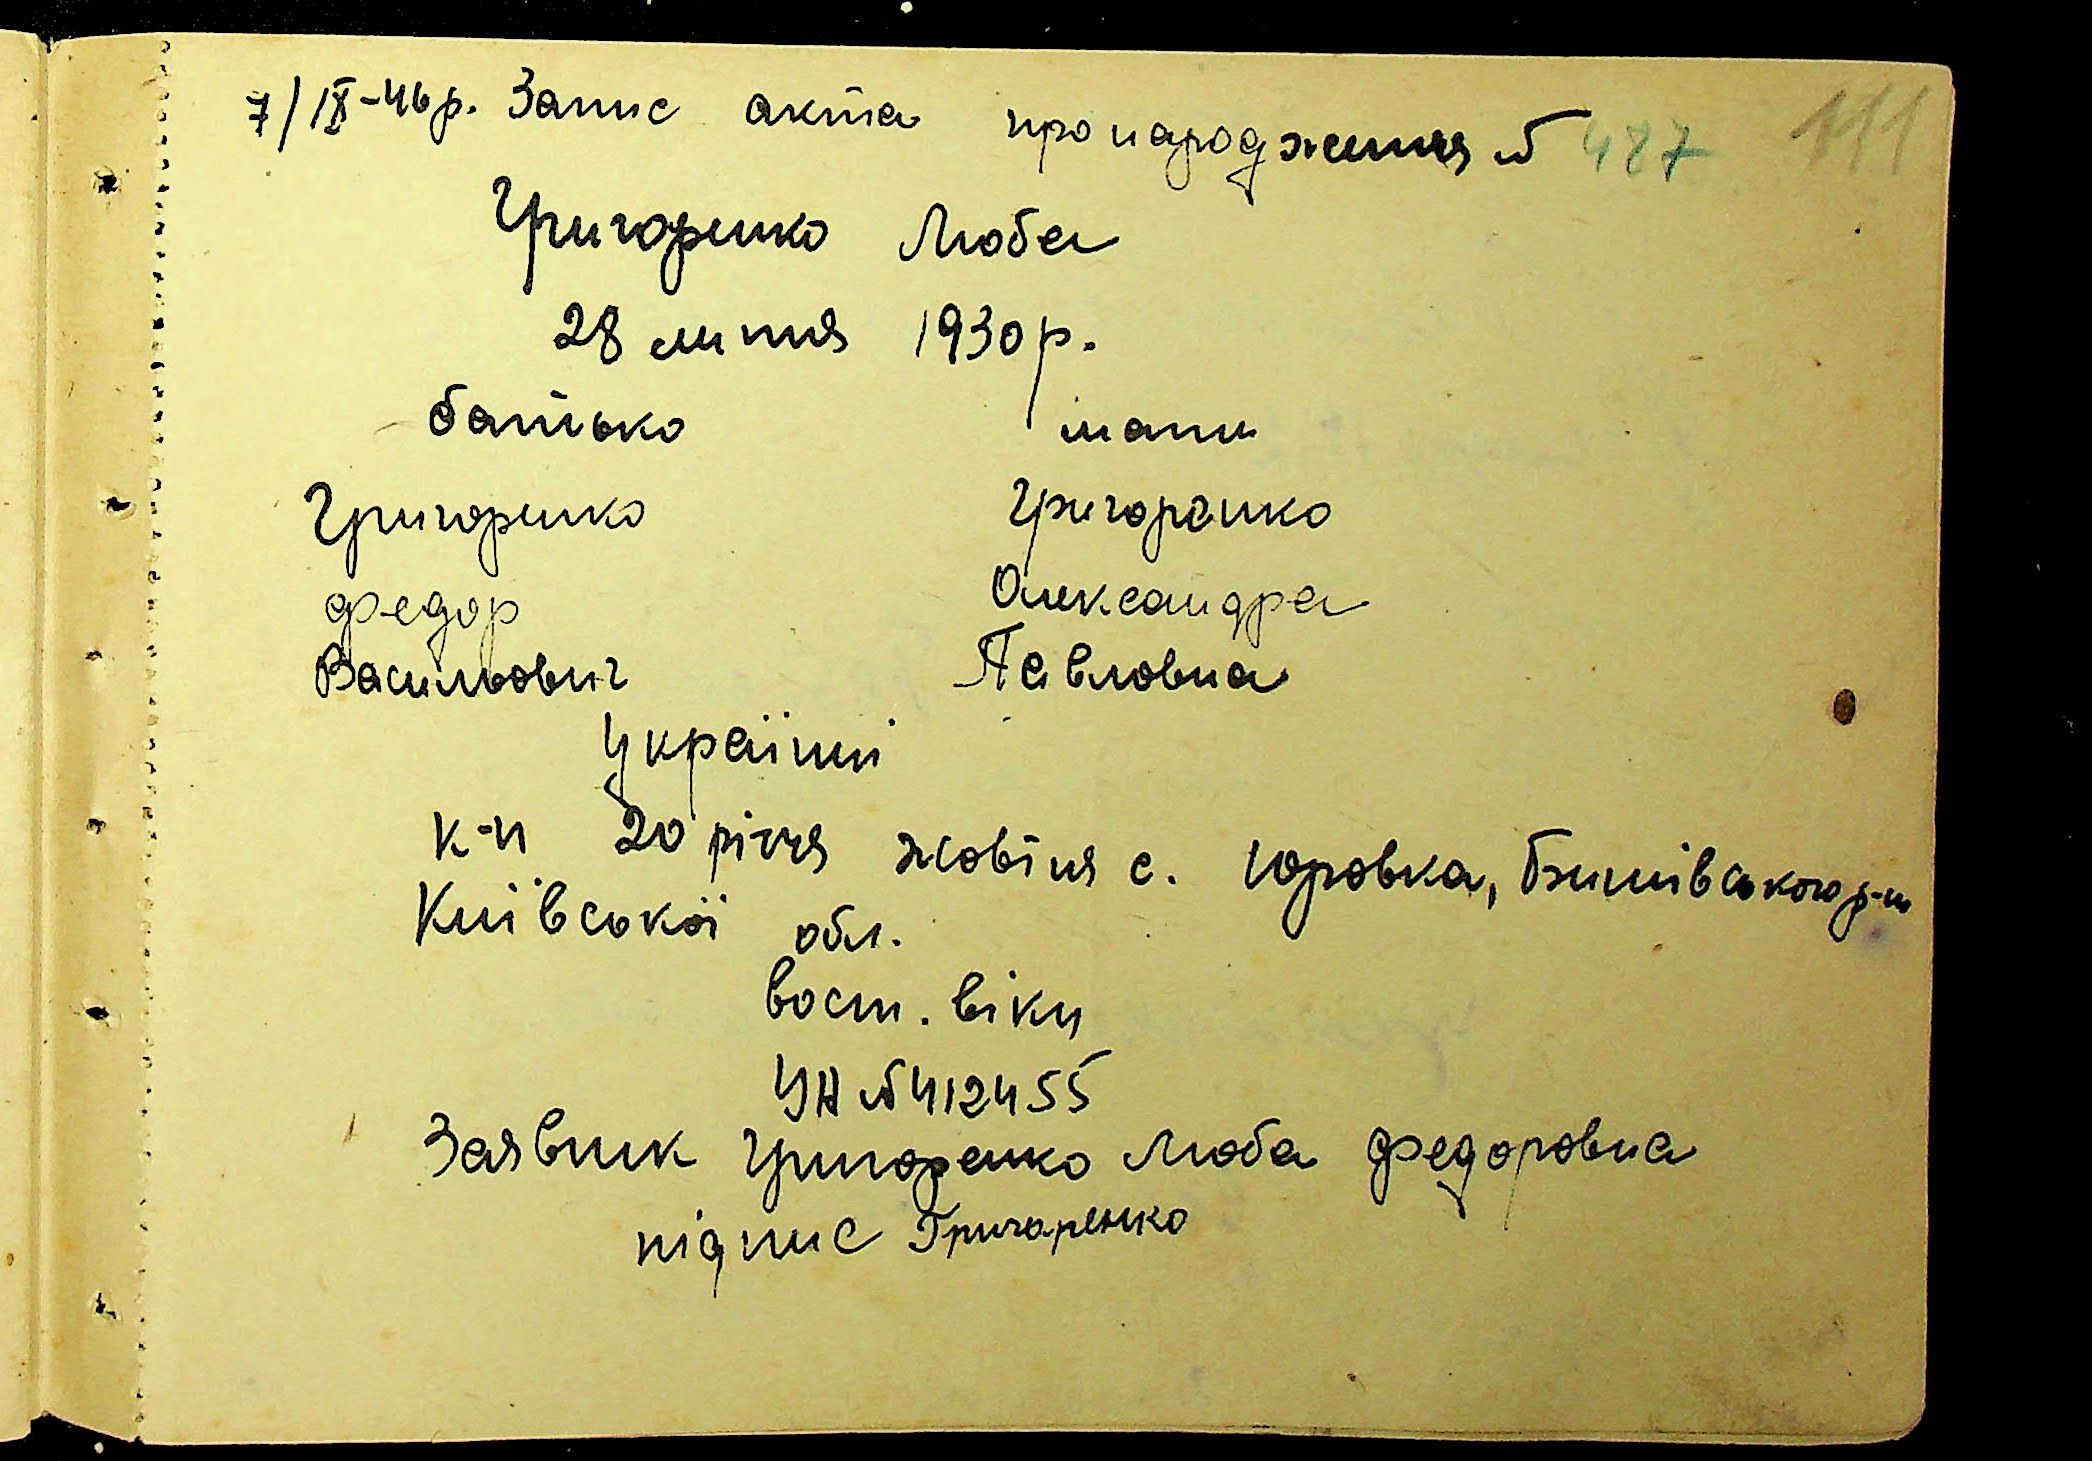 7/IX-46р. Запис акта про народження № 427
111
Григоренко Люба
28 липня 1930 р.
батько мати
Григоренко Григоренко
Федор Олександра
Васильович Павловна
Українці
К-п 20 річчя жовтня с. Юровка, Бишівського р-ну
Київської обл.
вост. віку
УН № 412455
Заявник Григоренко Люба Федоровна
підпис Григоренко